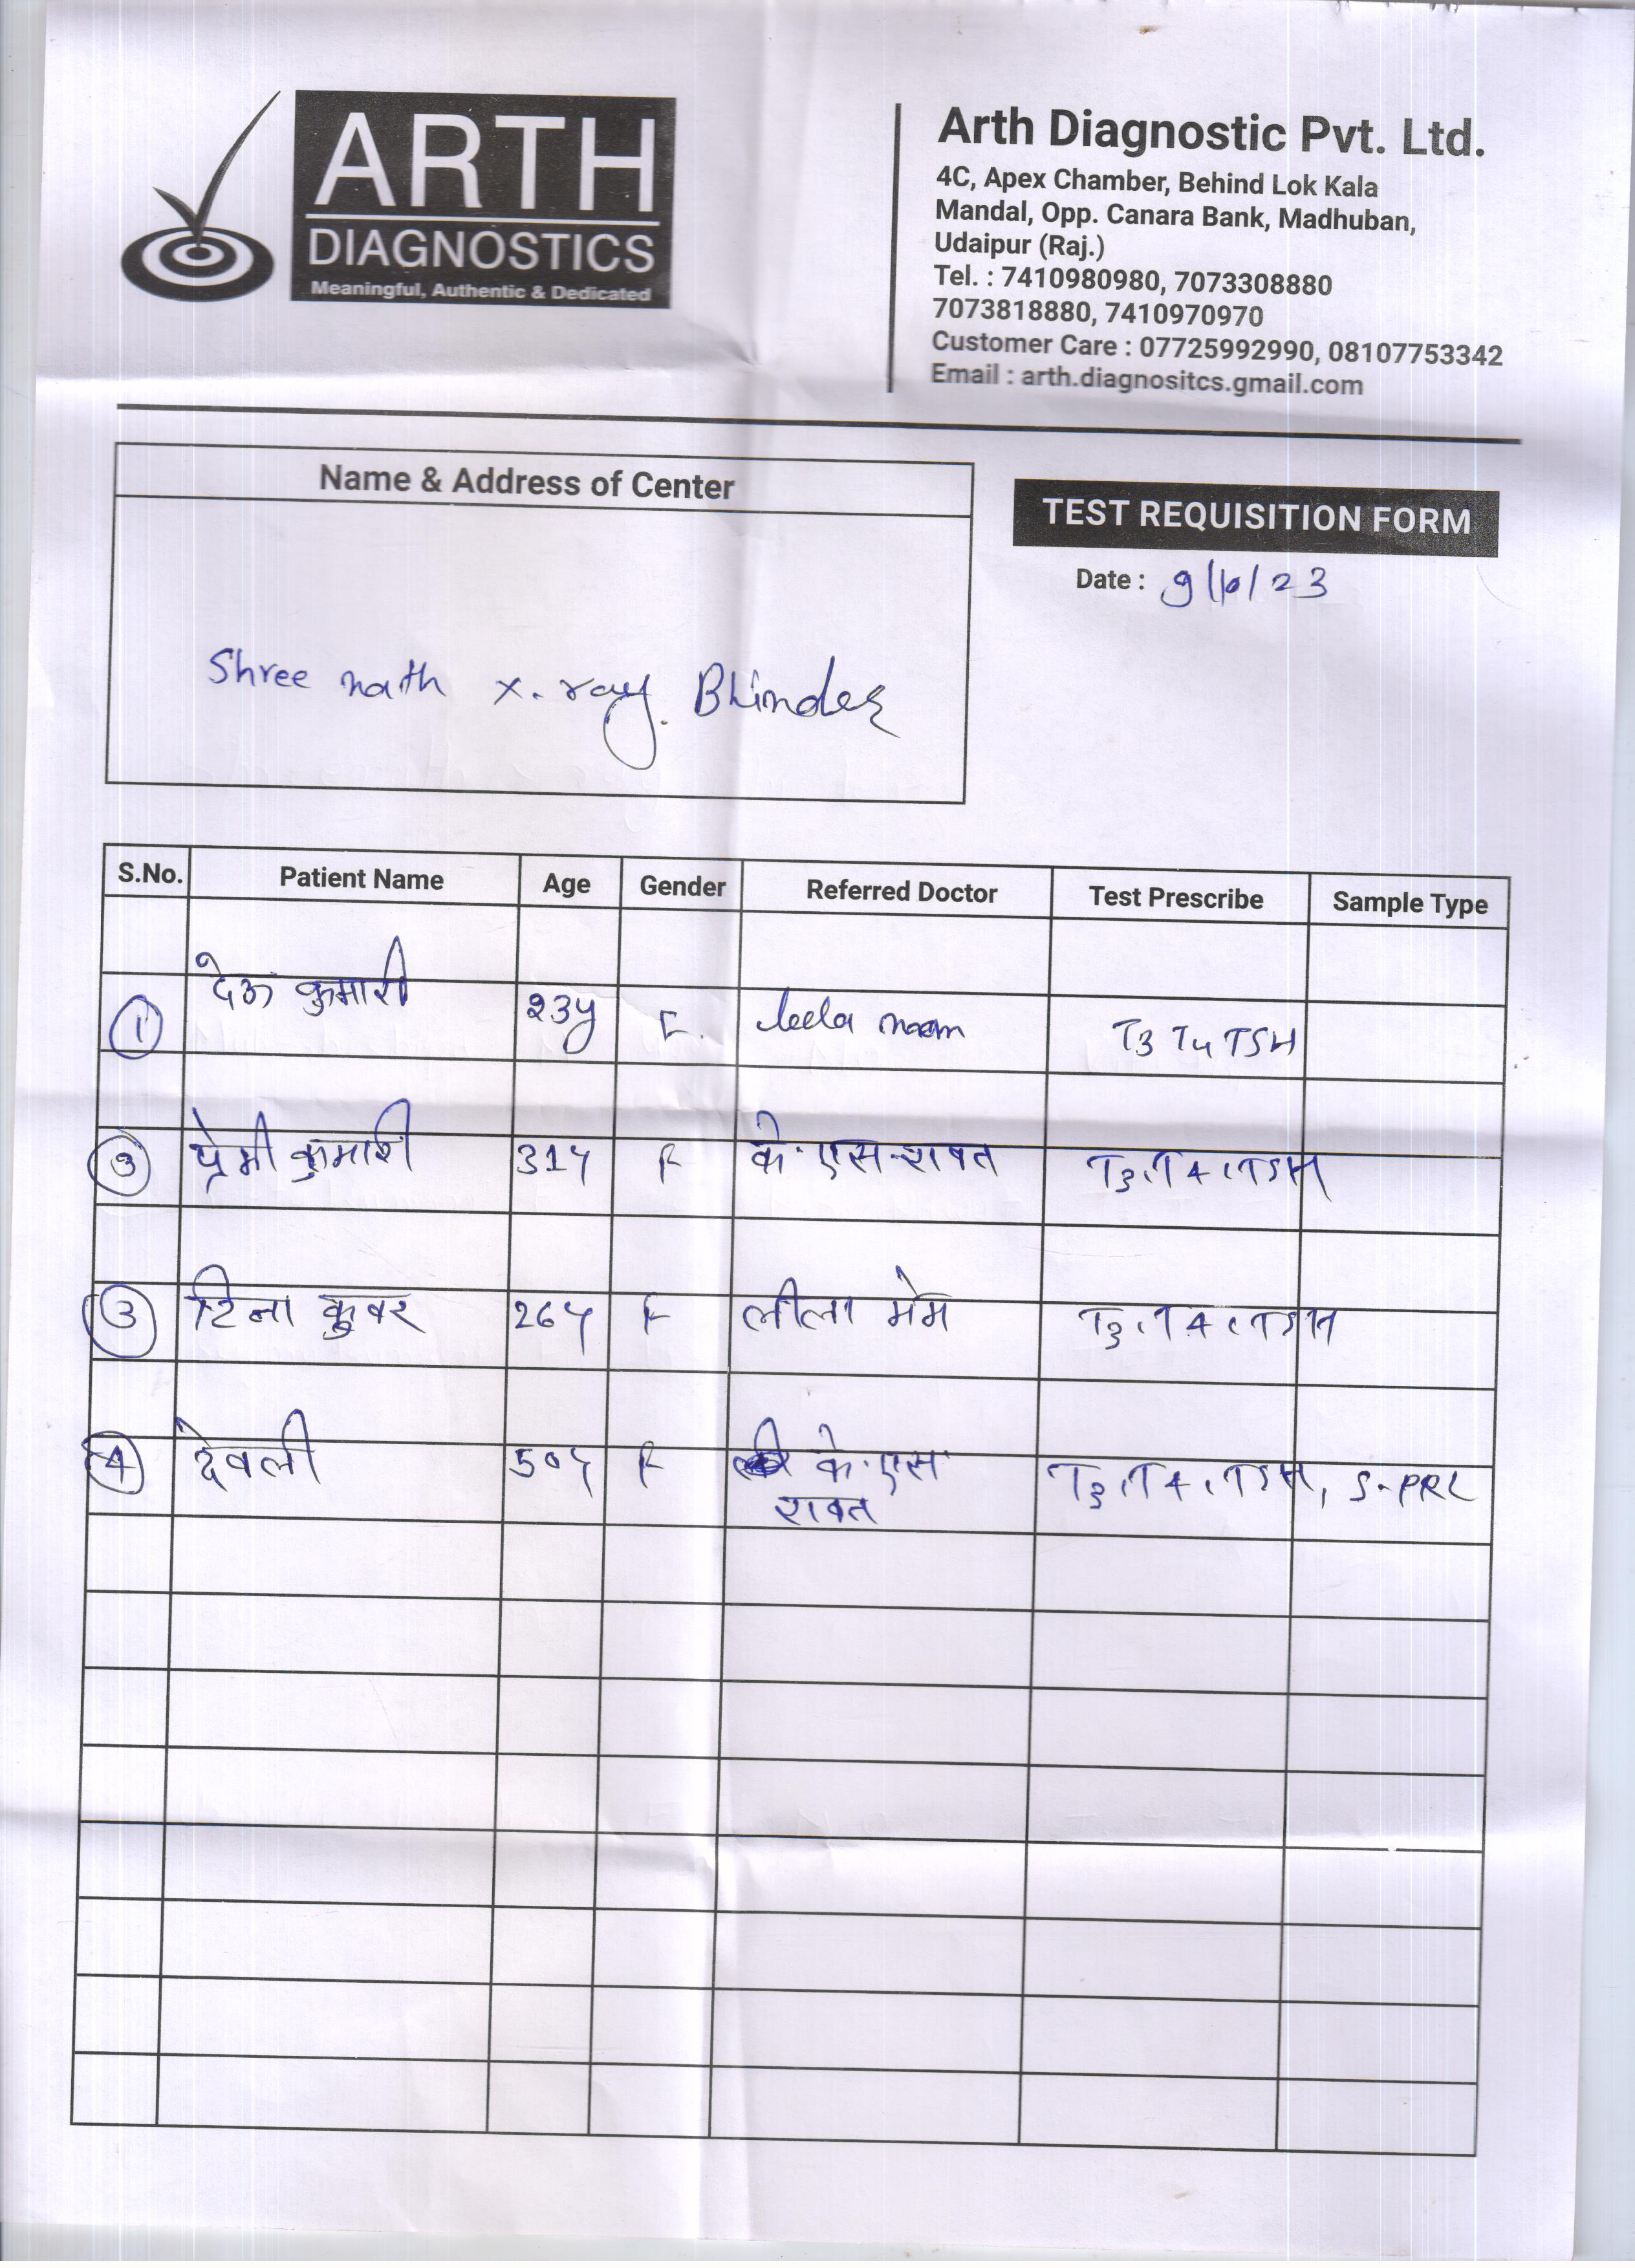 ARTH
DIAGNOSTICS
Meaningful, Authentic & Dedicated
Arth Diagnostic Pvt. Ltd.
4C, Apex Chamber, Behind Lok Kala
Mandal, Opp. Canara Bank, Madhuban,
Udaipur (Raj.)
Tel. : 7410980980, 7073308880
7073818880, 7410970970
Customer Care : 07725992990, 08107753342
Email : arth.diagnositcs.gmail.com
Name & Address of Center
TEST REQUISITION FORM
Date : 9/10/23
Shree nath x.ray. Bhinder
S.No. Patient Name Age Gender Referred Doctor Test Prescribe Sample Type
1 देऊ कुमारी 23y F. leela mam T3 T4 TSH
2 प्रेमी कुमारी 31y F के.एस.रावत T3,T4,TSH
3 टिना कुवर 26y F लीला मेम T3,T4,TSH
4 देवली 50y F के.एस. T3,T4,TSH, S-PRL
रावत